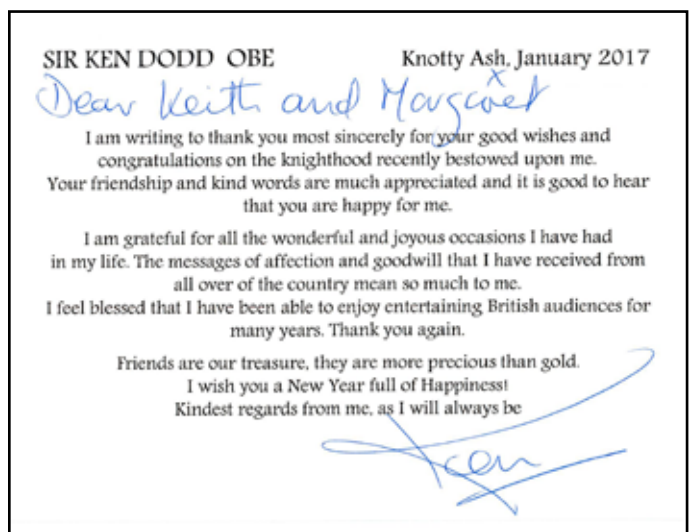 SIR KEN DODD OBE Knotty Ash, January 2017
Dear Keith and Margaret
x
I am writing to thank you most sincerely for your good wishes and
congratulations on the knighthood recently bestowed upon me.
Your friendship and kind words are much appreciated and it is good to hear
that you are happy for me.
I am grateful for all the wonderful and joyous occasions I have had
in my life. The messages of affection and goodwill that I have received from
all over of the country mean so much to me.
I feel blessed that I have been able to enjoy entertaining British audiences for
many years. Thank you again.
Friends are our treasure, they are more precious than gold.
I wish you a New Year full of Happiness!
Kindest regards from me, as I will always be
Ken